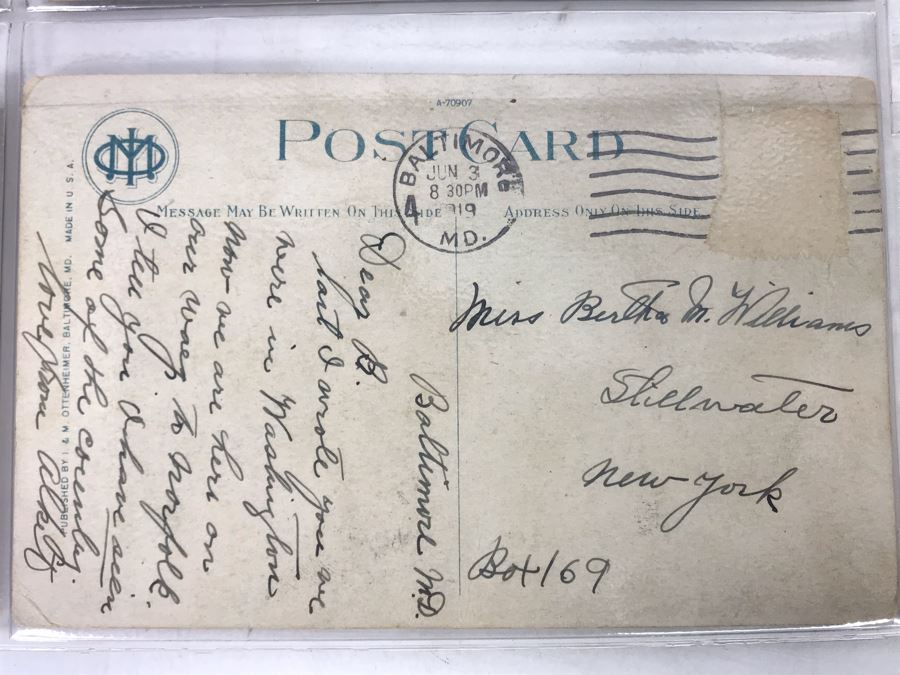 A-70907
POST CARD
BALTIMORE
JUN 3
8 30PM
1919
MD.
4
MESSAGE MAY BE WRITTEN ON THIS SIDE
ADDRESS ONLY ON THIS SIDE
Baltimore Md.
Dear B.
Last I wrote you we
were in Washington
now we are here on
our way to Norfolk.
I tell you I have seen
some of the country.
Love from
Miss Bertha M. Williams
Stillwater
New York
Box 169
PUBLISHED BY I. & M. OTTENHEIMER, BALTIMORE, MD. MADE IN U.S.A.